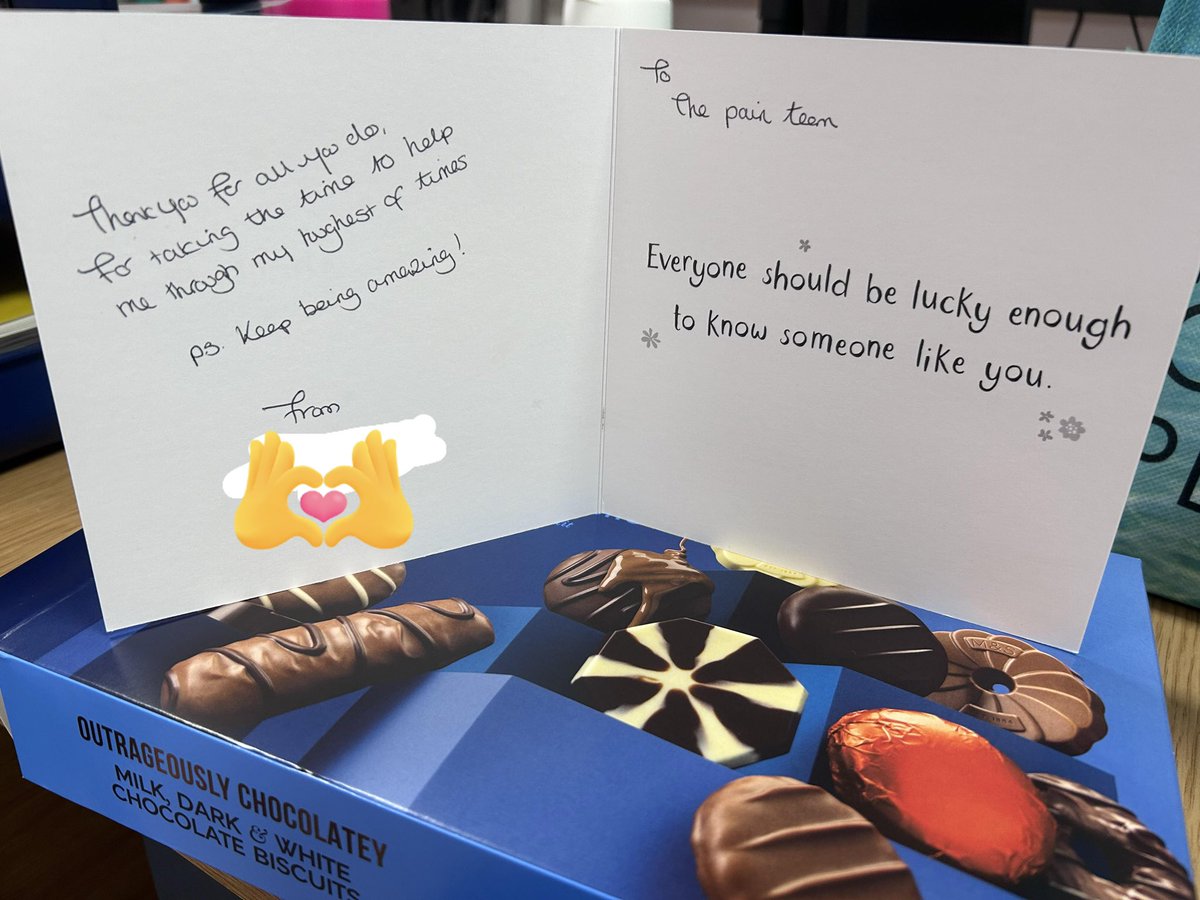 Thankyou for all you do,
for taking the time to help
me through my toughest of times
ps. Keep being amazing!
from
To
The pain team
Everyone should be lucky enough
to know someone like you.
M&S
OUTRAGEOUSLY CHOCOLATEY
MILK, DARK & WHITE
CHOCOLATE BISCUITS